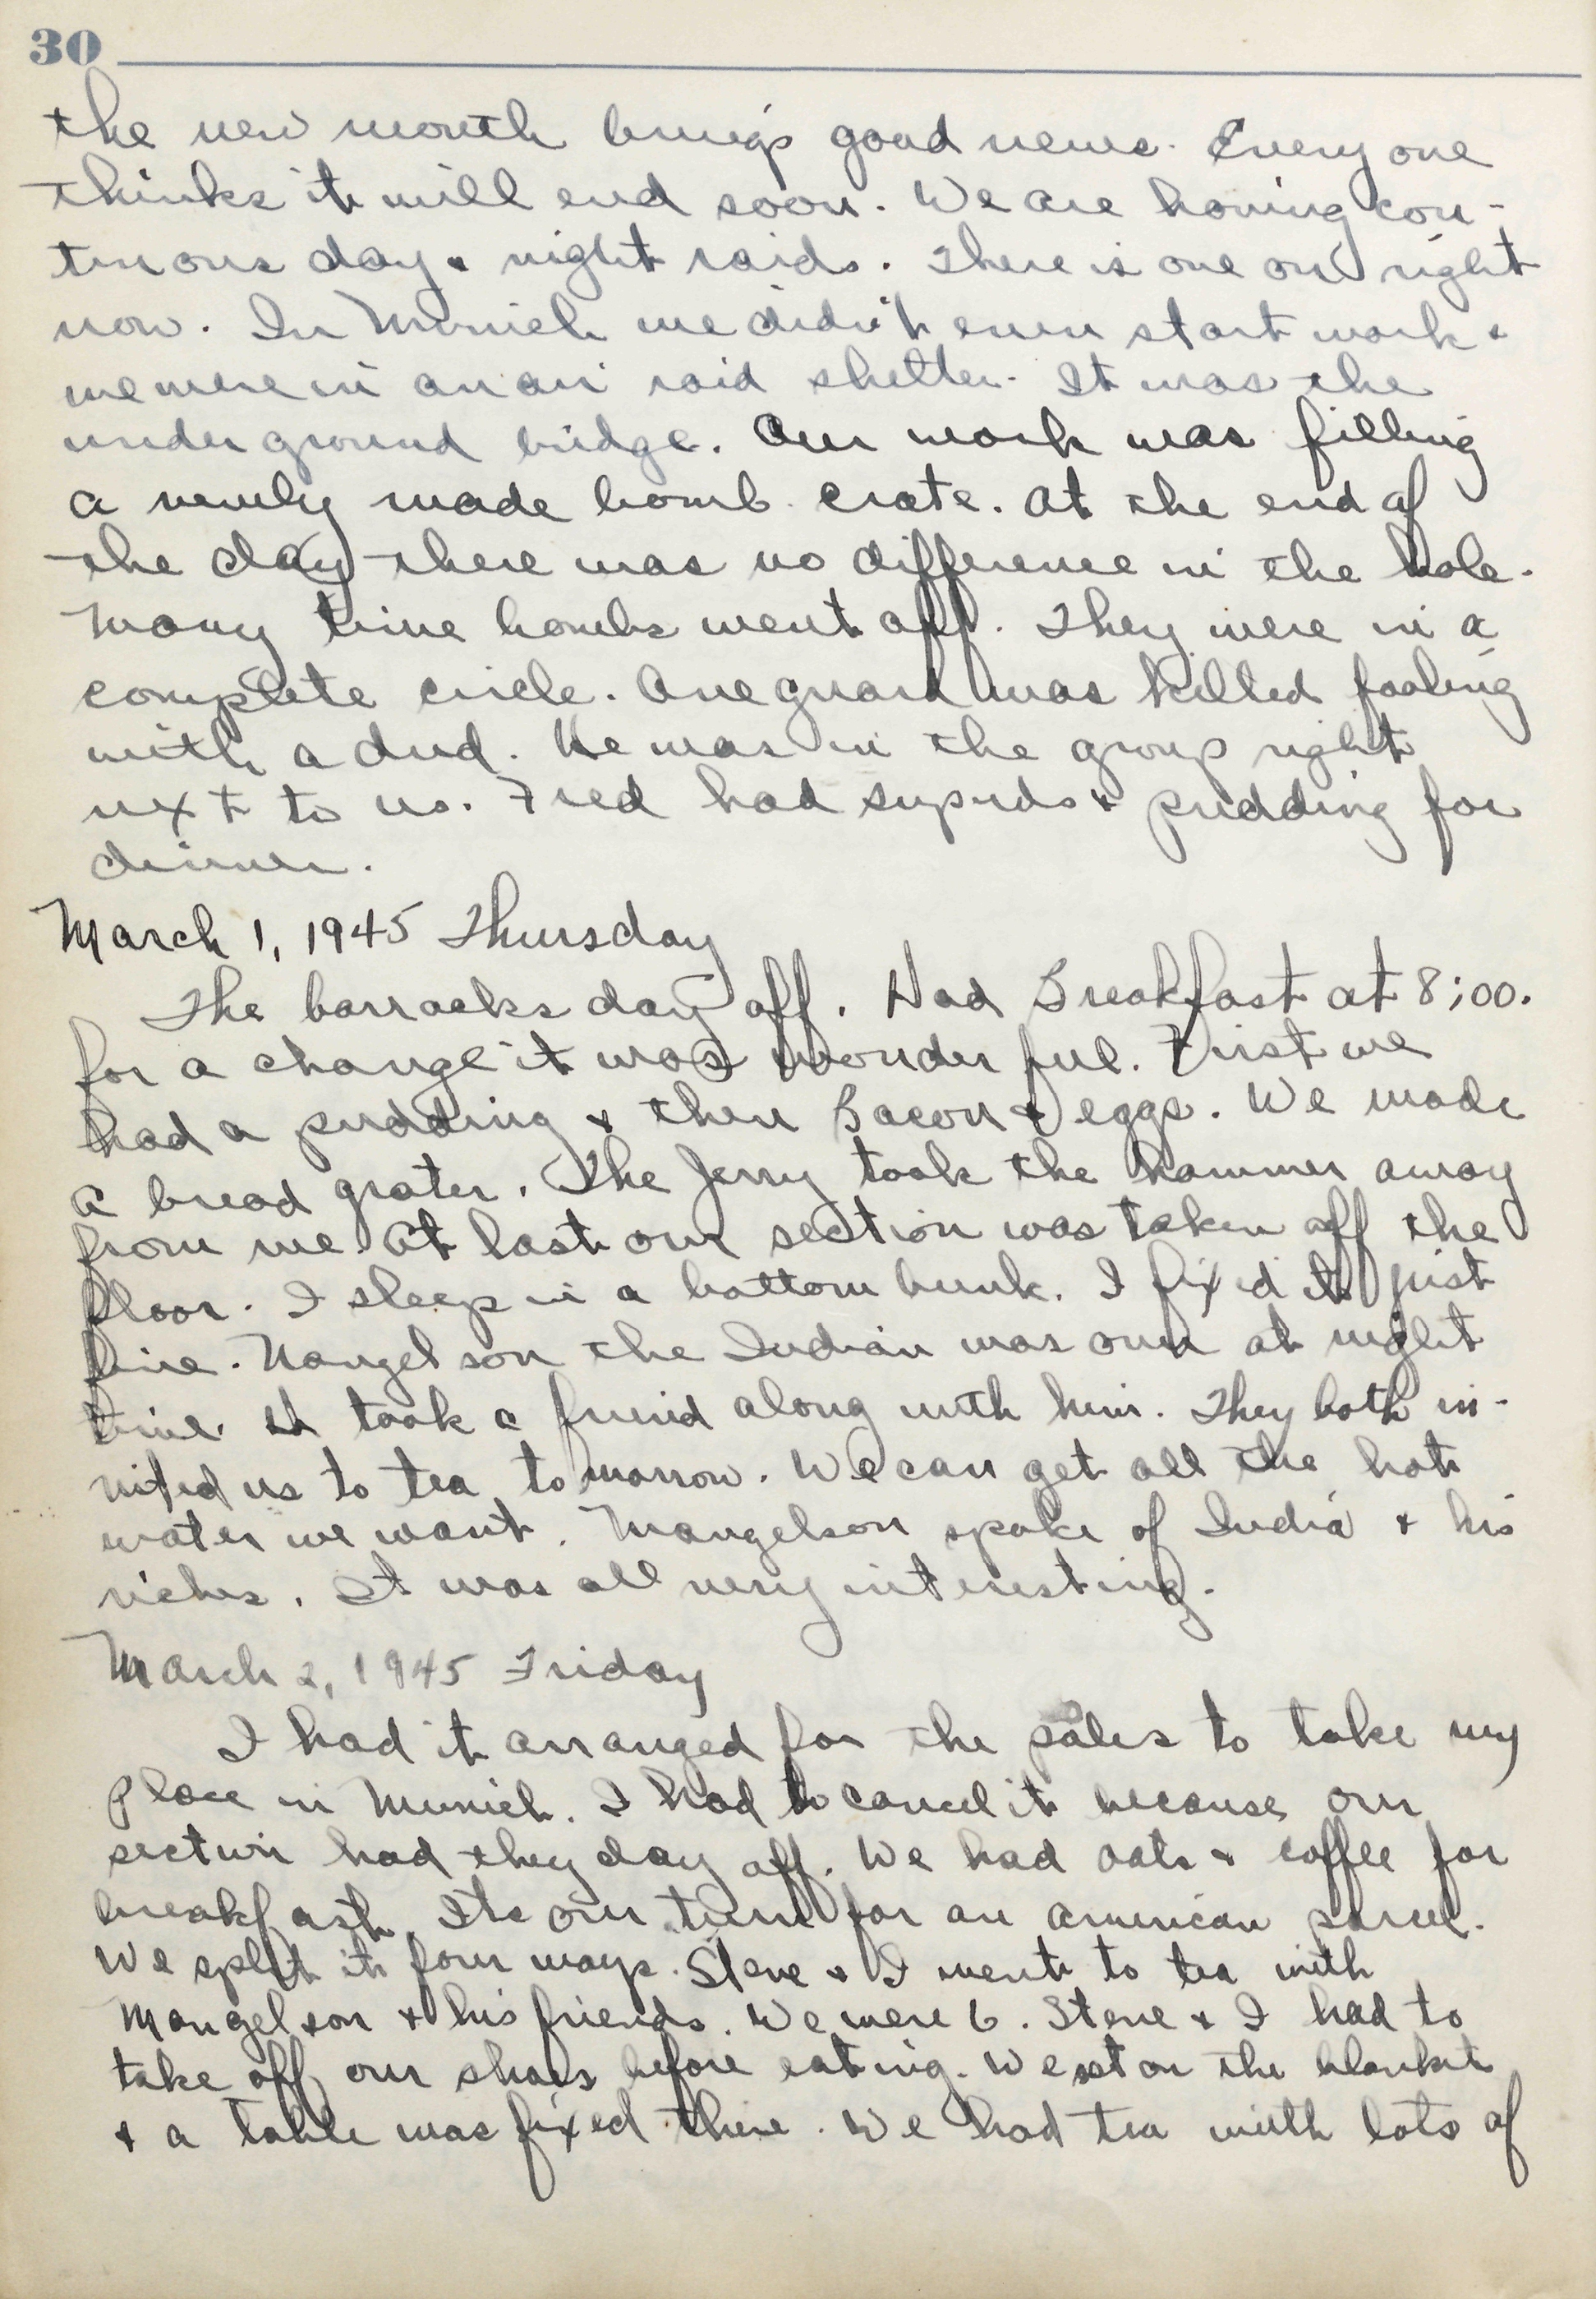 30
the new month brings good news. Everyone
thinks it will end soon. We are having con-
tinous day & night raids. There is one on right
now. In Munich we didn't even start work &
we were in an air raid shelter. It was the
under ground bridge. Our work was filling
a newly made bomb crate. At the end of
the day there was no difference in the hole.
Many time bombs went off. They were in a
complete circle. One guard was killed fooling
with a dud. He was in the group right
next to us. Fred had supuds & pudding for
dinner.
March 1, 1945 Thursday
The barracks day off. Had Breakfast at 8;00.
for a change it was wonderful. First we
had a pudding & then Bacon & eggs. We made
a bread grater. The Jerry took the hammer away
from me. At last our section was taken off the
floor. I sleep in a bottom bunk. I fixed it just
fine. Mangelson the Indian was over at night
time. took a friend along with him. They both in-
vited us to tea tomorrow. We can get all the hot
water we want. Mangelson spoke of India & his
riches. It was all very interesting.
March 2, 1945 Friday
I had it arranged for the poles to take my
place in Munich. I had to cancel it because our
section had they day off. We had oats & coffee for
breakfast. Its our turn for an American parcel.
We split it four ways. Steve & I went to tea with
Mangelson & his friends. We were 6. Steve & I had to
take off our shoes before eating. We sat on the blanket
& a table was fixed there. We had tea with lots of